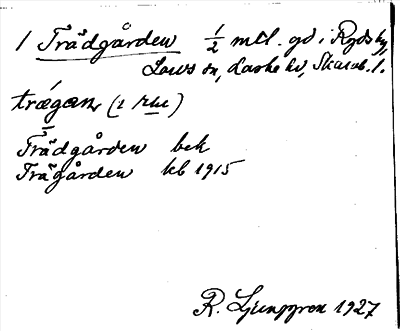 1 Trädgården 1/2 mtl. gd i Rydsby,
Lavs sn, Laske hd, Skarab. l.
trǽgan, (2 rku)
Trädgården bek
Trägården kb 1915
R. Ljunggren 1927